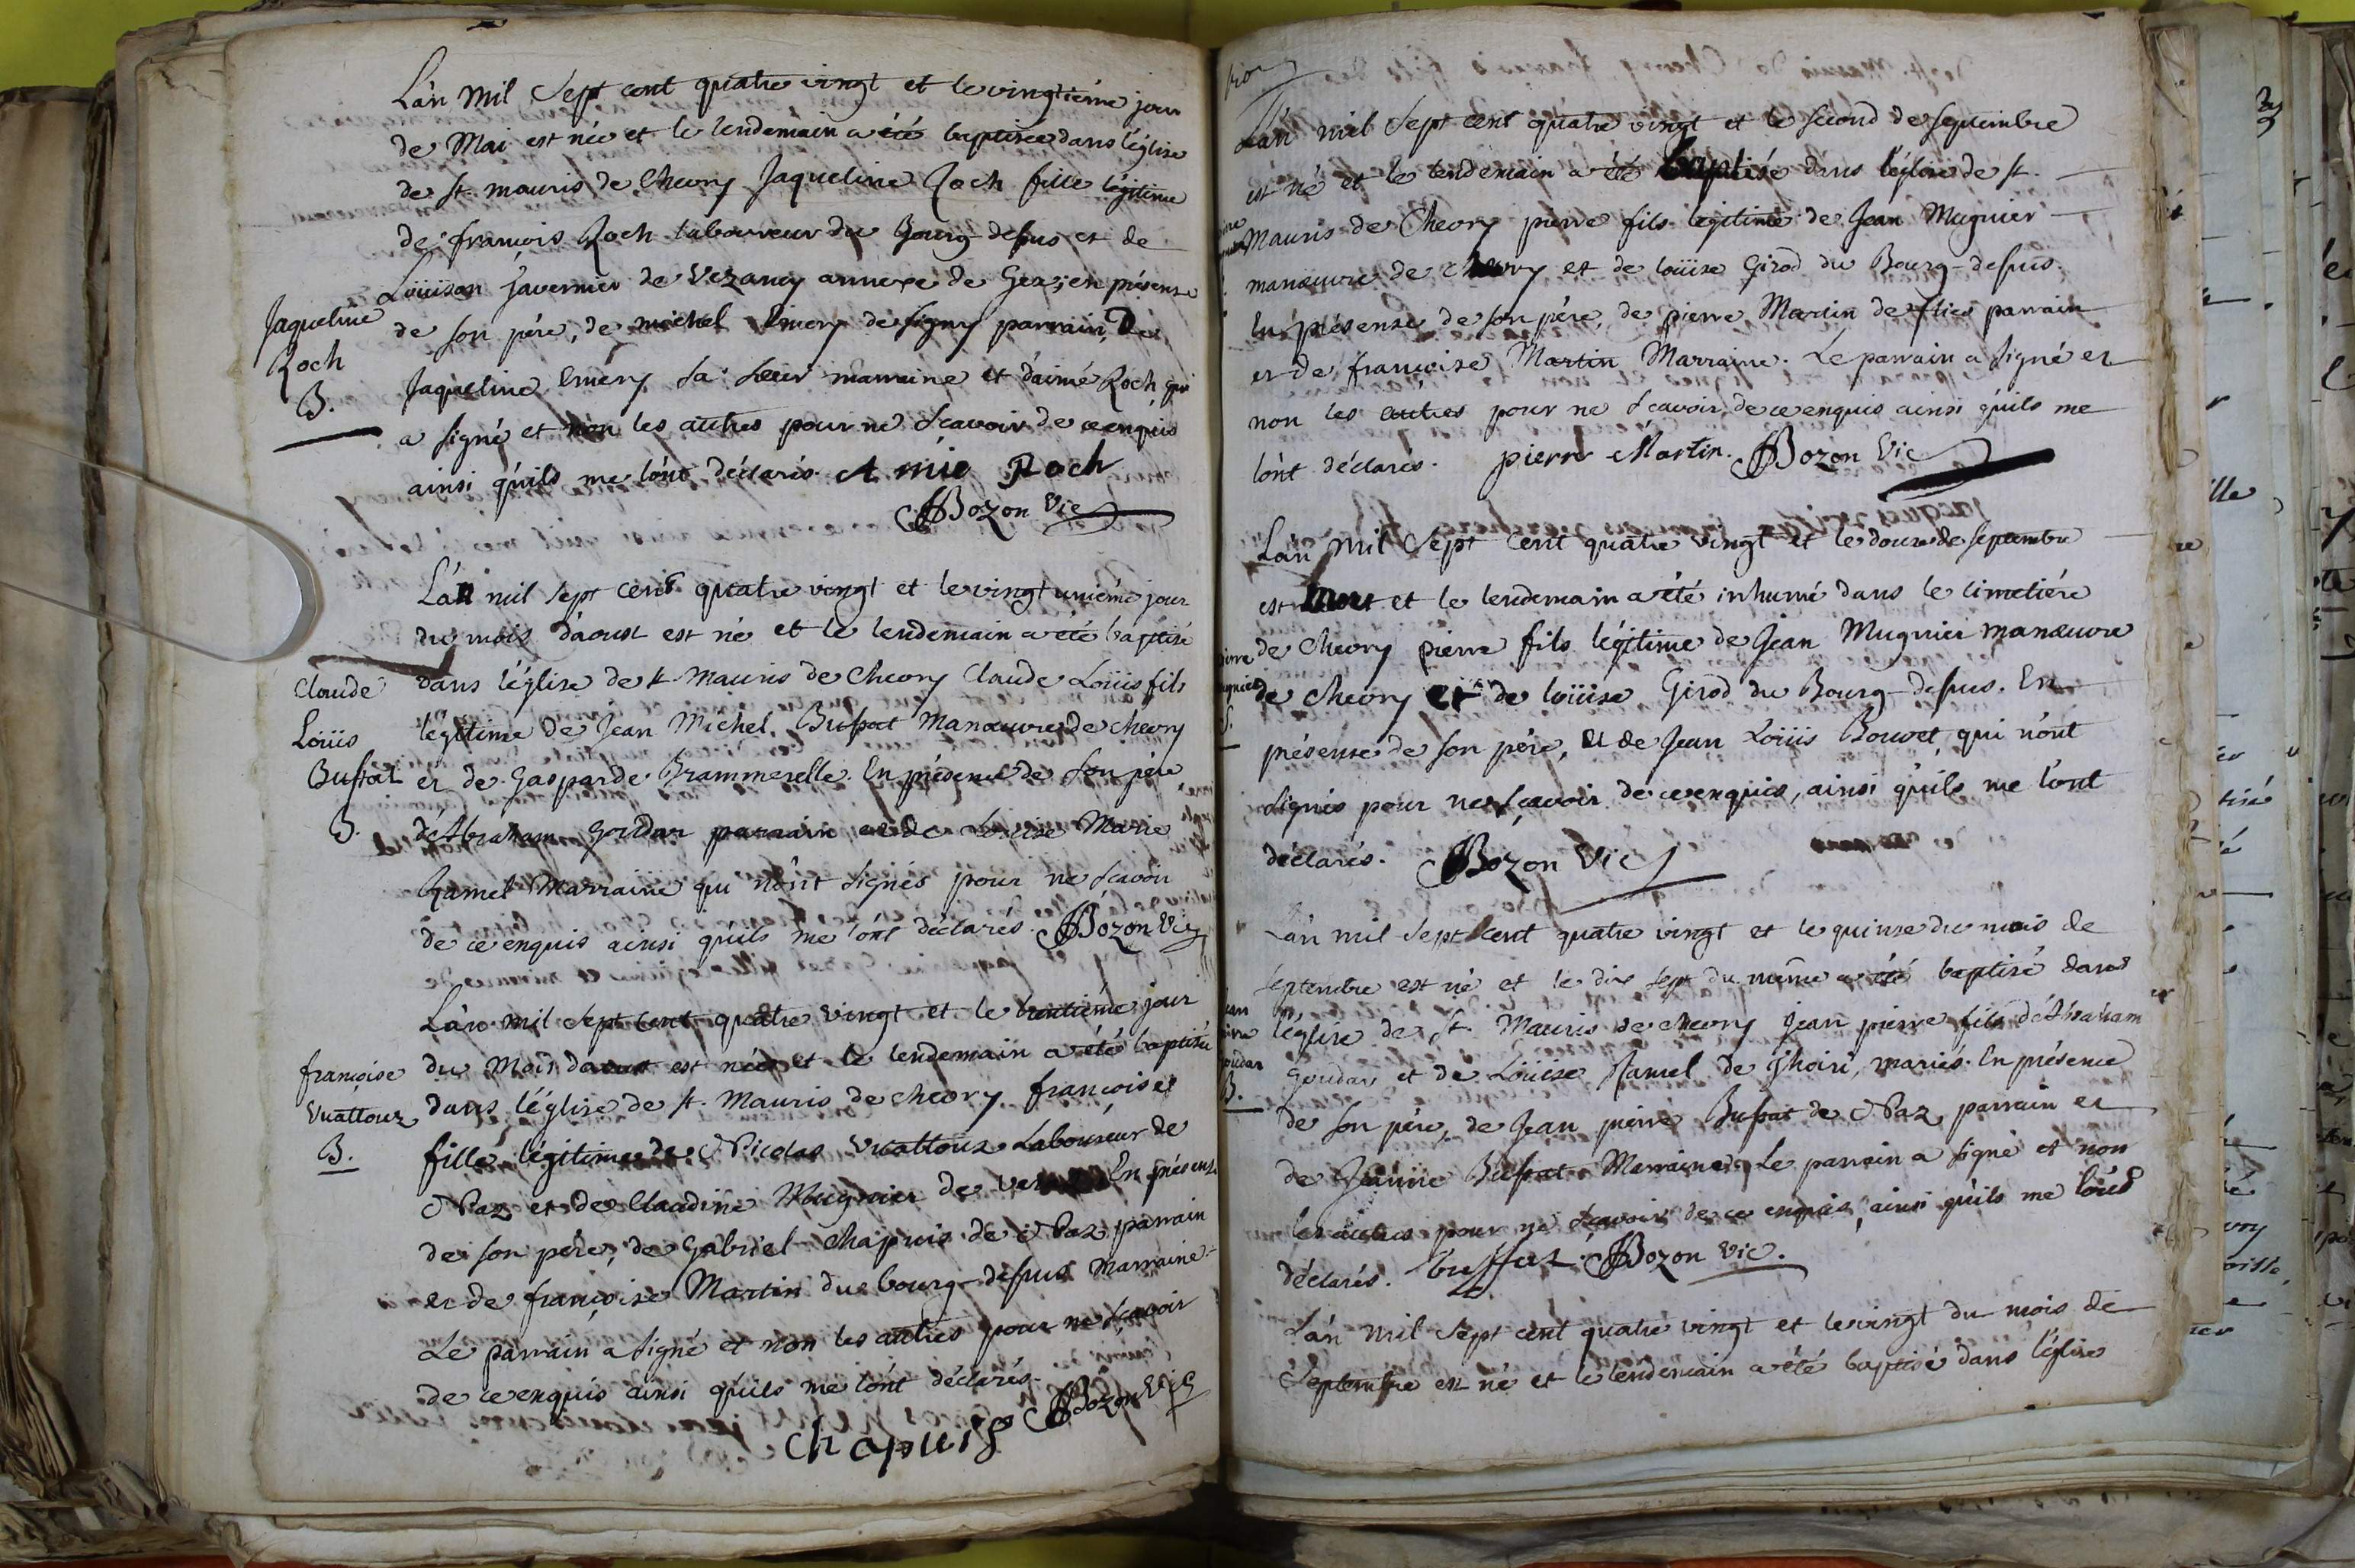 L'an mil sept cent quatre vingt et le vingtiéme jour
de Mai est née et le lendemain a été baptisée dans l'église
de st. mauris de Chevry Jaqueline Roch fille légitime
de françois Roch laboureur du Bourg-dessus et de
Loüison Javernier de Vezancy annexe de Gex; en présence
Jaqueline
Roch
B.
de son pére, de michel Emery de signy parrain, De
Jaqueline Emery sa soeur marraine et d'aimé Roch qui
a signé et non les autres pour ne sçavoir de ce enquis
ainsi qu'ils me l'ont déclarés. A mie Roch
Bozon Vic
L'an mil sept cent quatre vingt et le vingt uniéme jour
du mois d'aoust est né et le lendemain a été baptisé
Claude
Loüis
Bussat
B.
dans l'église de st. Mauris de Chevry Claude Loüis fils
légitime de Jean Michel Bussat Manœuvre de chevry
et de Gasparde Brammerelle. En présence de son pére
d'Abraham Goudar parrain et de Loüise Marie
Ramel Marraine qui n'ont signés pour ne sçavoir
de ce enquis ainsi qu'ils me l'ont déclarés. Bozon Vic
L'an mil sept cent quatre vingt et le trentiéme jour
françoise
Vuattoux
B.
du Mois d'aoust est née et le lendemain a été baptisée
dans l'église de st. Mauris de chevry françoise
fille légitime de Nicolas Vuattoux Laboureur de
Naz et de Claudine Mugnier de En présence
de son pére, de Gabriel Chapuis de Naz parrain
et de françoise Martin du bourg-dessus Marraine.
Le parrain a signé et non les autres pour ne sçavoir
de ce enquis ainsi qu'ils me l'ont déclarés.
Bozon Vic
chapuis
L'an mil sept cent quatre vingt et le second de septembre
est né et le lendemain a été baptisé dans l'église de st.
Mauris de Chevry pierre fils légitime de Jean Mugnier
manœuvre de chevry et de loüise Girod du Bourg-dessus.
En présence de son pére, de pierre Martin de parrain
et de françoise Martin Marraine. Le parrain a signé et
non les autres pour ne sçavoir de ce enquis ainsi qu'ils me
l'ont déclarés. pierre Martin. Bozon Vic
L'an mil sept cent quatre vingt et le douze de septembre
est mort et le lendemain a été inhumé dans le cimetiére
de Chevry pierre fils légitime de Jean Mugnier manœuvre
de chevry et de loüise Girod du Bourg-dessus. En
présence de son pére, et de Jean Loüis Bouvet, qui n'ont
signés pour ne sçavoir de ce enquis, ainsi qu'ils me l'ont
déclarés. Bozon Vic
L'an mil sept cent quatre vingt et le quinze du mois de
septembre est né et le dix sept du même a été baptisé dans
l'église de st. Mauris de chevry Jean pierre fils d'Abraham
Goudar et de Loüise Ramel de Thoiri, mariés. En présence
de son pére, de Jean pierre Bussat de Naz parrain et
de Jeanne Bussat Marraine. Le parrain a signé et non
les autres pour ne sçavoir de ce enquis, ainsi qu'ils me l'ont
déclarés. bussat. Bozon Vic.
L'an mil sept cent quatre vingt et le vingt du mois de
Septembre est né et le lendemain a été baptisé dans l'église